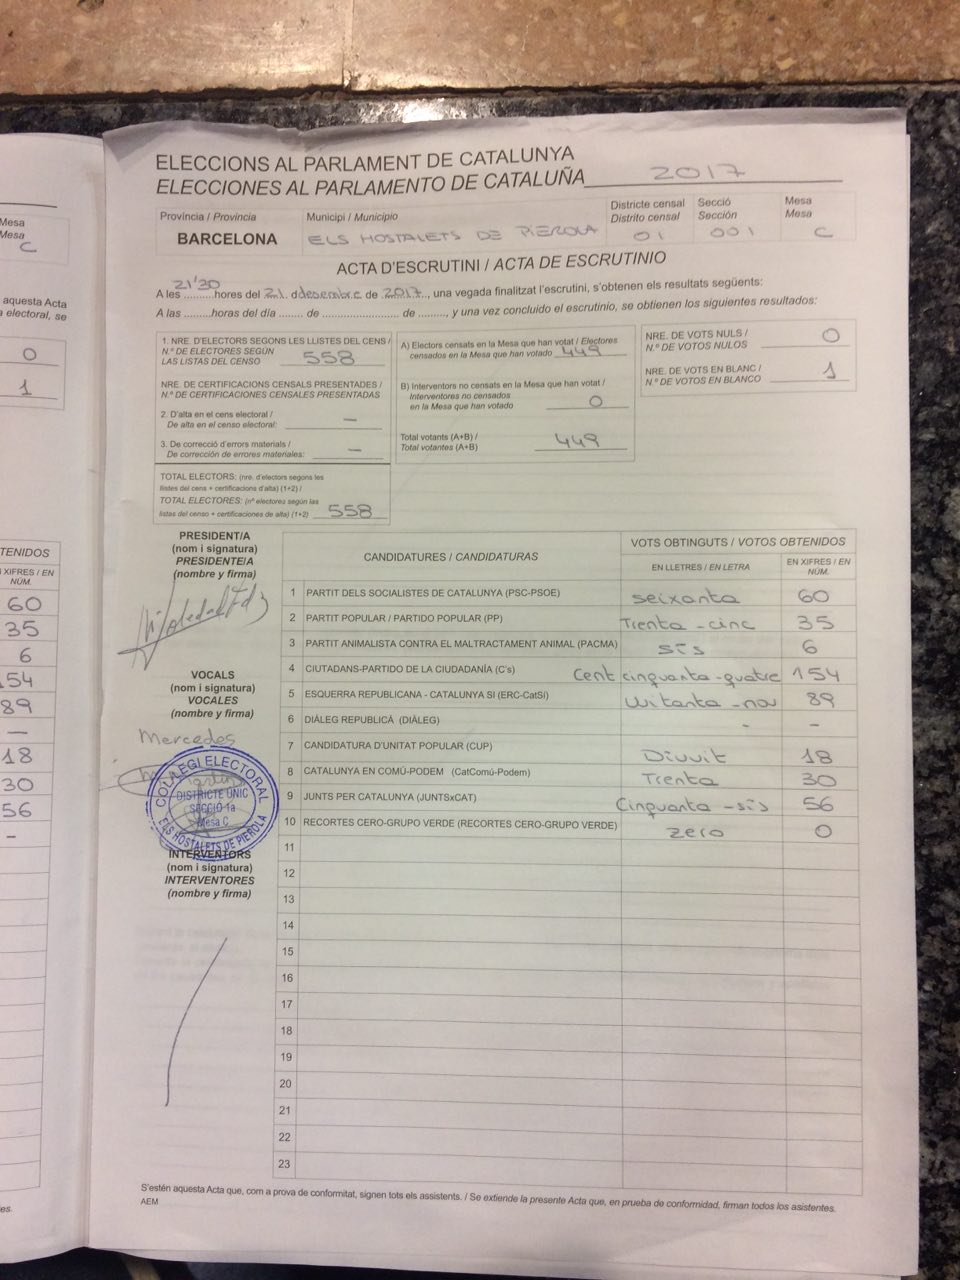 ELECCIONS AL PARLAMENT DE CATALUNYA
ELECCIONES AL PARLAMENTO DE CATALUÑA 2017
Província / Provincia
BARCELONA
Municipi / Municipio
ELS HOSTALETS DE PIEROLA
Districte censal
Distrito censal
01
Secció
Sección
001
Mesa
Mesa
C
ACTA D'ESCRUTINI / ACTA DE ESCRUTINIO
A les 21'30 hores del 21 d desembre de 2017, una vegada finalitzat l'escrutini, s'obtenen els resultats següents:
A las .........horas del día ....... de .......................... de ........, y una vez concluido el escrutinio, se obtienen los siguientes resultados:
1. NRE. D'ELECTORS SEGONS LES LLISTES DEL CENS /
N.º DE ELECTORES SEGÚN
LAS LISTAS DEL CENSO 558
NRE. DE CERTIFICACIONS CENSALS PRESENTADES /
N.º DE CERTIFICACIONES CENSALES PRESENTADAS
2. D'alta en el cens electoral /
De alta en el censo electoral: —
3. De correcció d'errors materials /
De corrección de errores materiales: —
TOTAL ELECTORS: (nre. d'electors segons les
llistes del cens + certificacions d'alta) (1+2) /
TOTAL ELECTORES: (nº electores según las
listas del censo + certificaciones de alta) (1+2) 558
A) Electors censats en la Mesa que han votat / Electores
censados en la Mesa que han votado 449
B) Interventors no censats en la Mesa que han votat /
Interventores no censados
en la Mesa que han votado 0
Total votants (A+B) /
Total votantes (A+B) 449
NRE. DE VOTS NULS /
N.º DE VOTOS NULOS 0
NRE. DE VOTS EN BLANC /
N.º DE VOTOS EN BLANCO 1
PRESIDENT/A
(nom i signatura)
PRESIDENTE/A
(nombre y firma)
VOCALS
(nom i signatura)
VOCALES
(nombre y firma)
Mercedes
COL·LEGI ELECTORAL
DISTRICTE ÚNIC
SECCIÓ 1a
Mesa C
ELS HOSTALETS DE PIEROLA
INTERVENTORS
(nom i signatura)
INTERVENTORES
(nombre y firma)
CANDIDATURES / CANDIDATURAS
VOTS OBTINGUTS / VOTOS OBTENIDOS
EN LLETRES / EN LETRA
EN XIFRES / EN NÚM.
1 PARTIT DELS SOCIALISTES DE CATALUNYA (PSC-PSOE) seixanta 60
2 PARTIT POPULAR / PARTIDO POPULAR (PP) Trenta-cinc 35
3 PARTIT ANIMALISTA CONTRA EL MALTRACTAMENT ANIMAL (PACMA) sis 6
4 CIUTADANS-PARTIDO DE LA CIUDADANÍA (C's) Cent cinquanta-quatre 154
5 ESQUERRA REPUBLICANA - CATALUNYA SI (ERC-CatSí) Vuitanta-nou 89
6 DIÀLEG REPUBLICÀ (DIÀLEG) - -
7 CANDIDATURA D'UNITAT POPULAR (CUP) Divuit 18
8 CATALUNYA EN COMÚ-PODEM (CatComú-Podem) Trenta 30
9 JUNTS PER CATALUNYA (JUNTSxCAT) Cinquanta-sis 56
10 RECORTES CERO-GRUPO VERDE (RECORTES CERO-GRUPO VERDE) zero 0
11
12
13
14
15
16
17
18
19
20
21
22
23
S'estén aquesta Acta que, com a prova de conformitat, signen tots els assistents. / Se extiende la presente Acta que, en prueba de conformidad, firman todos los asistentes.
AEM
Mesa
Mesa
C
aquesta Acta
a electoral, se
0
1
TENIDOS
XIFRES / EN
NÚM.
60
35
6
154
89
—
18
30
56
-